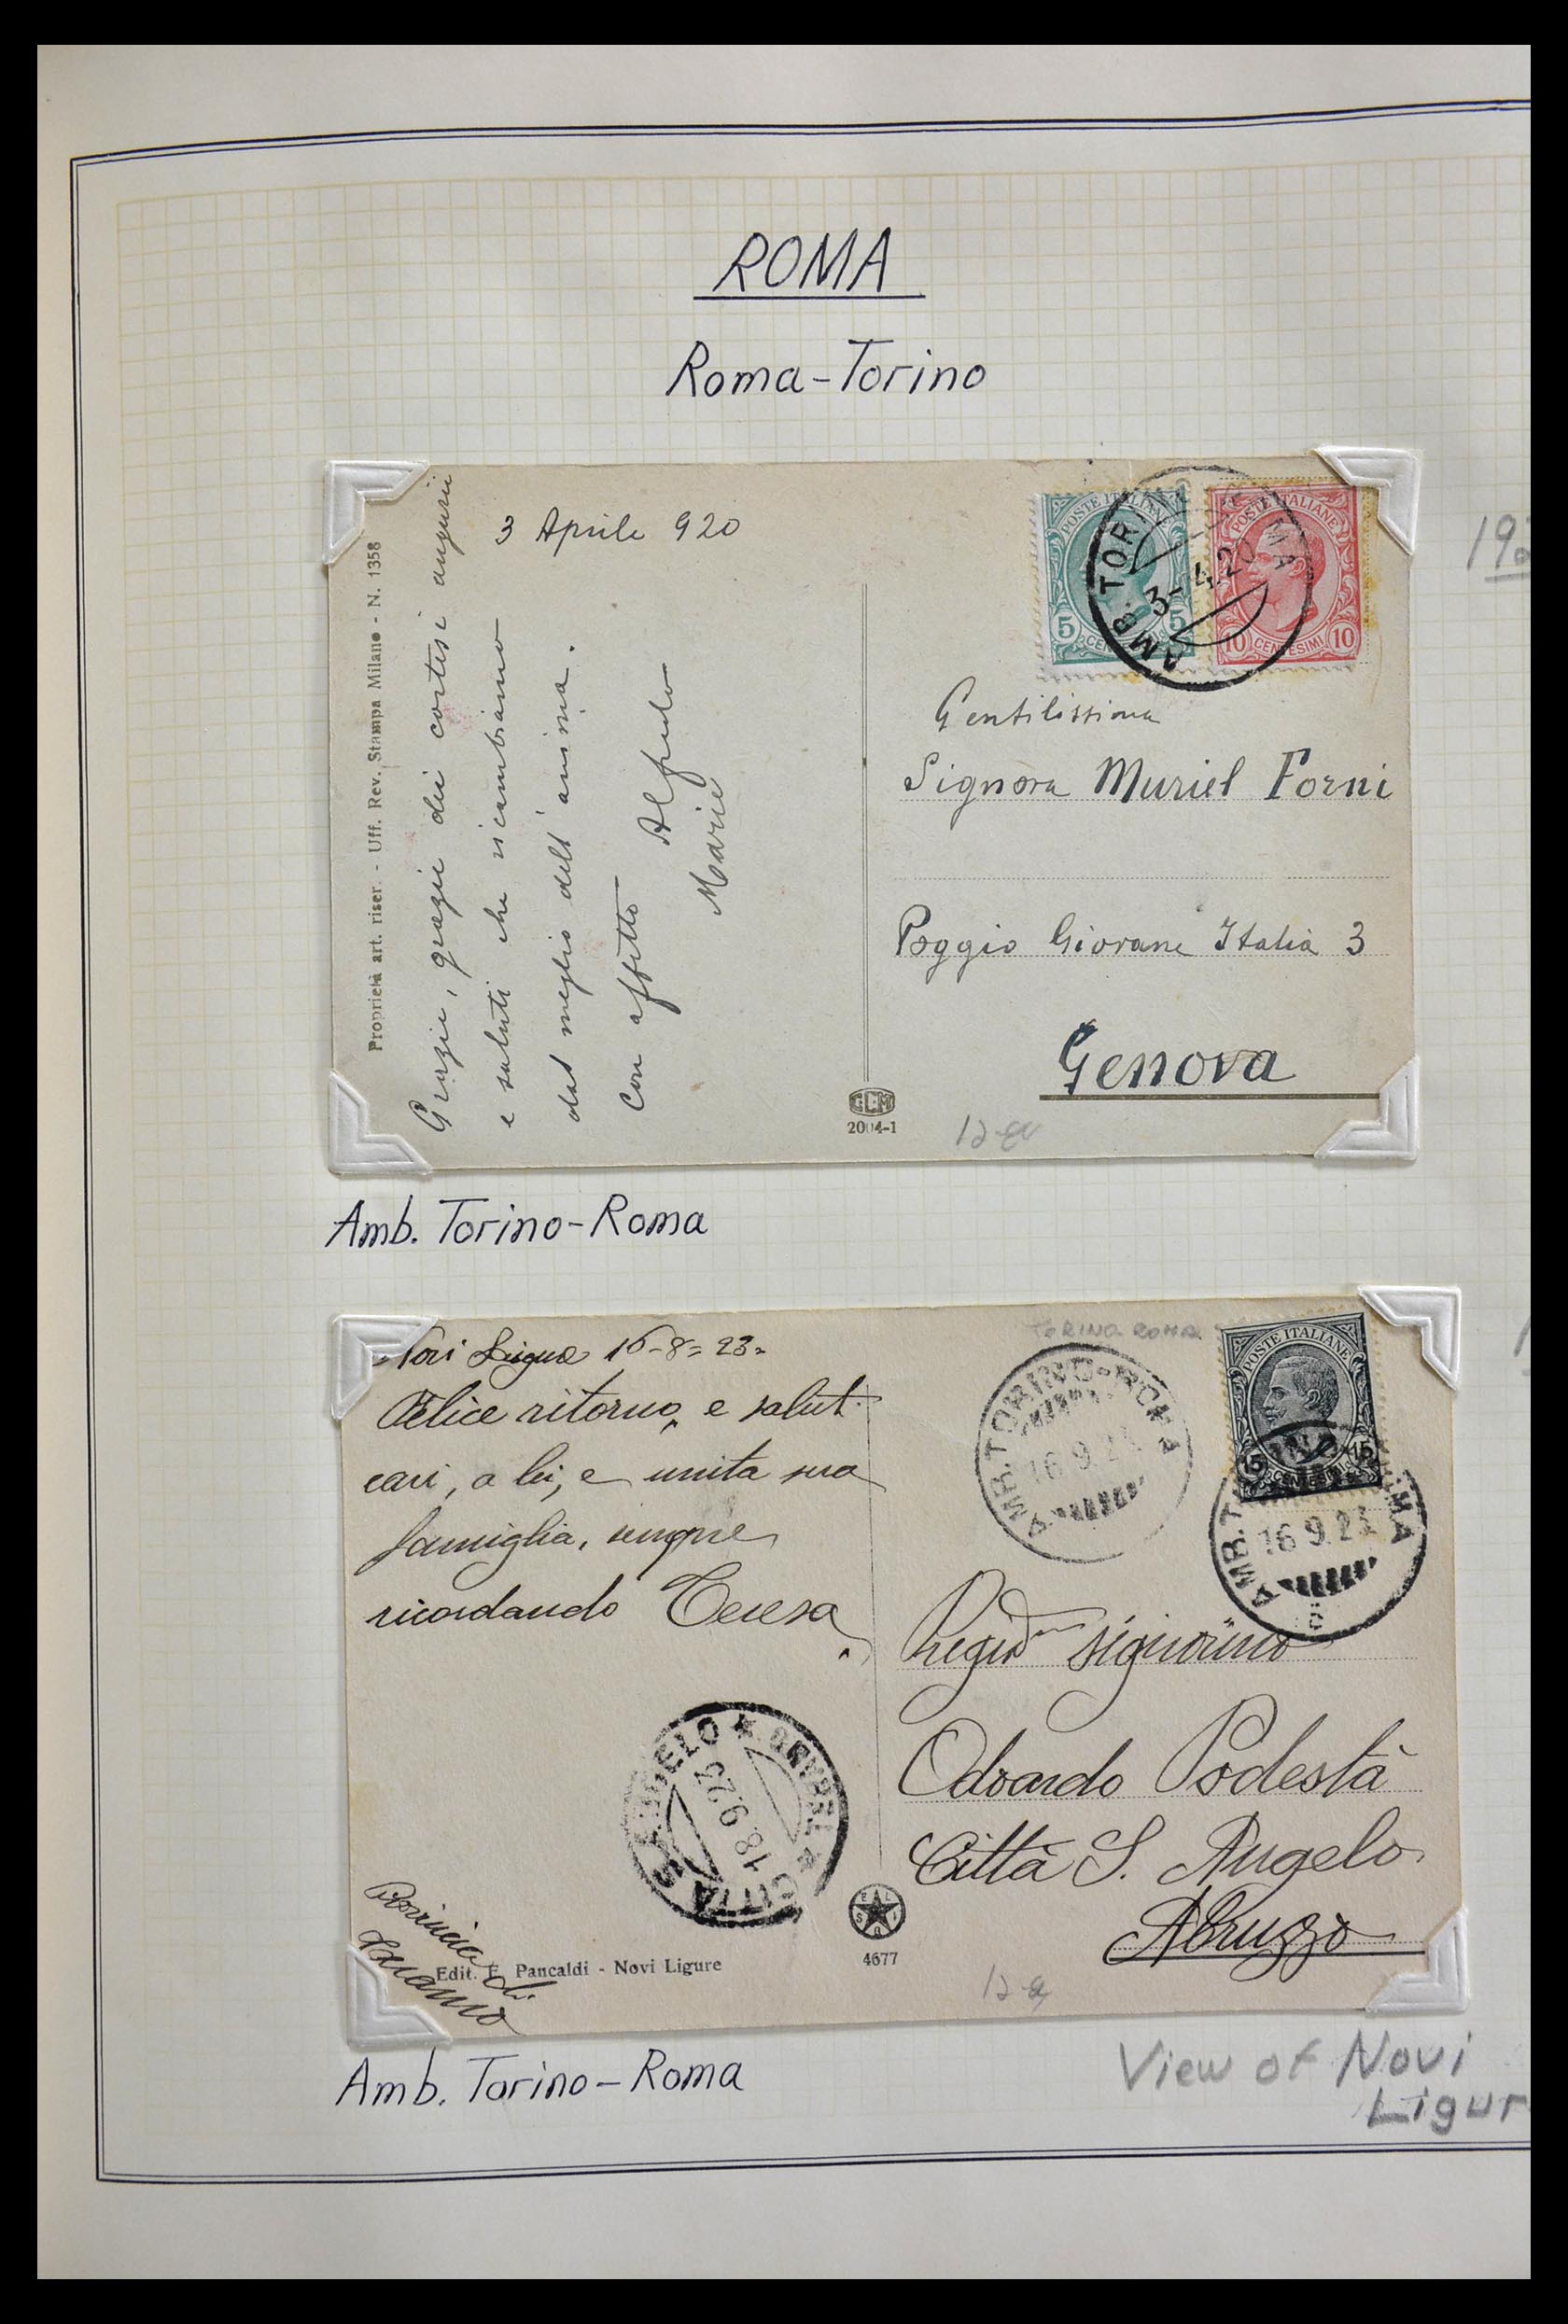 ROMA
Roma-Torino
192
3 Aprile 920
Proprietà art. riser. - Uff. Rev. Stampa Milano - N. 1358
Grazie, grazie dei cortesi augurii
e saluti che ricambiamo
dal meglio dell'anima.
Con affetto Alfredo
Marie
POSTE ITALIANE
5 CENTESIMI 5
POSTE ITALIANE
10 CENTESIMI 10
AMB. TORINO ROMA
3-4.20
Gentilissima
Signora Muriel Forni
Poggio Giovane Italia 3
Genova
GCM
2004-1
12-
Amb. Torino-Roma
Novi Ligure 16-8=23=
Felice ritorno, e salut
cari, a lei, e unita sua
famiglia, sempre
ricordando Teresa
TORINO ROMA
AMB. TORINO-ROMA
16.9.23
POSTE ITALIANE
15 CENTESIMI 15
AMB. TORINO ROMA
16.9.23
signorino
Odoardo Podestà
Città S. Angelo
Abruzzo
CITTÀ S. ANGELO ★ TERAMO ★
18.9.23
Provincia di
Teramo
Edit. F. Pancaldi - Novi Ligure
4677
12-a
Amb. Torino-Roma
View of Novi
Ligur